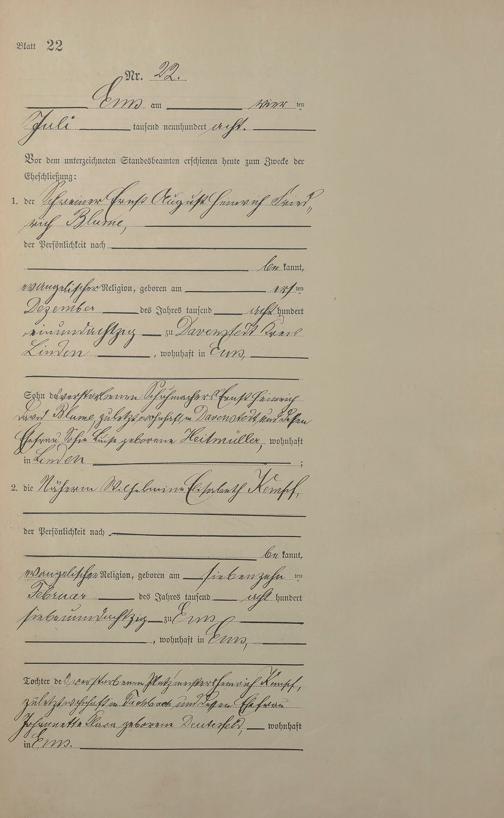 Blatt 22
Nr. 22.
Ems am vier ten
Juli tausend neunhundert acht.
Vor dem unterzeichneten Standesbeamten erschienen heute zum Zwecke der
Eheschließung:
1. der Schreiner Ernst August Heinrich Fried-
rich Blume,
der Persönlichkeit nach
be kannt,
evangelischer Religion, geboren am ersten
Dezember des Jahres tausend acht hundert
einundachtzig zu Davenstedt Kreis
Linden, wohnhaft in Ems,
Sohn des verstorbenen Schuhmachers Ernst Heinrich
Blume, zuletzt wohnhaft in Davenstedt und dessen
Ehefrau Sofie Luise geborene Heitmüller, wohnhaft
in Linden;
2. die Näherin Wilhelmine Elisabeth Kempf,
der Persönlichkeit nach
be kannt,
evangelischer Religion, geboren am siebenzehn ten
Februar des Jahres tausend acht hundert
siebenundachtzig zu Ems
, wohnhaft in Ems,
Tochter des verstorbenen Heinrich Kempf,
zuletzt wohnhaft in und dessen Ehefrau
Johannette geborene wohnhaft
in Ems.